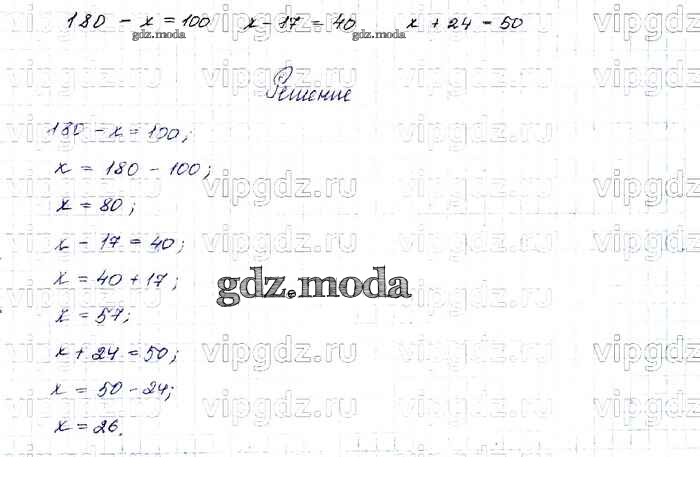 180 - x = 100 x - 17 = 40 x + 24 = 50
gdz.moda gdz.moda
vipgdz.ru vipgdz.ru vipgdz.ru
Решение
vipgdz.ru vipgdz.ru vipgdz.ru
180 - x = 100;
vipgdz.ru vipgdz.ru vipgdz.ru
x = 180 - 100;
vipgdz.ru vipgdz.ru vipgdz.ru
x = 80;
vipgdz.ru vipgdz.ru vipgdz.ru
x - 17 = 40;
vipgdz.ru vipgdz.ru vipgdz.ru
x = 40 + 17;
gdz.moda
vipgdz.ru vipgdz.ru vipgdz.ru
x = 57;
x + 24 = 50;
vipgdz.ru vipgdz.ru vipgdz.ru
x = 50 - 24;
vipgdz.ru vipgdz.ru vipgdz.ru
x = 26.